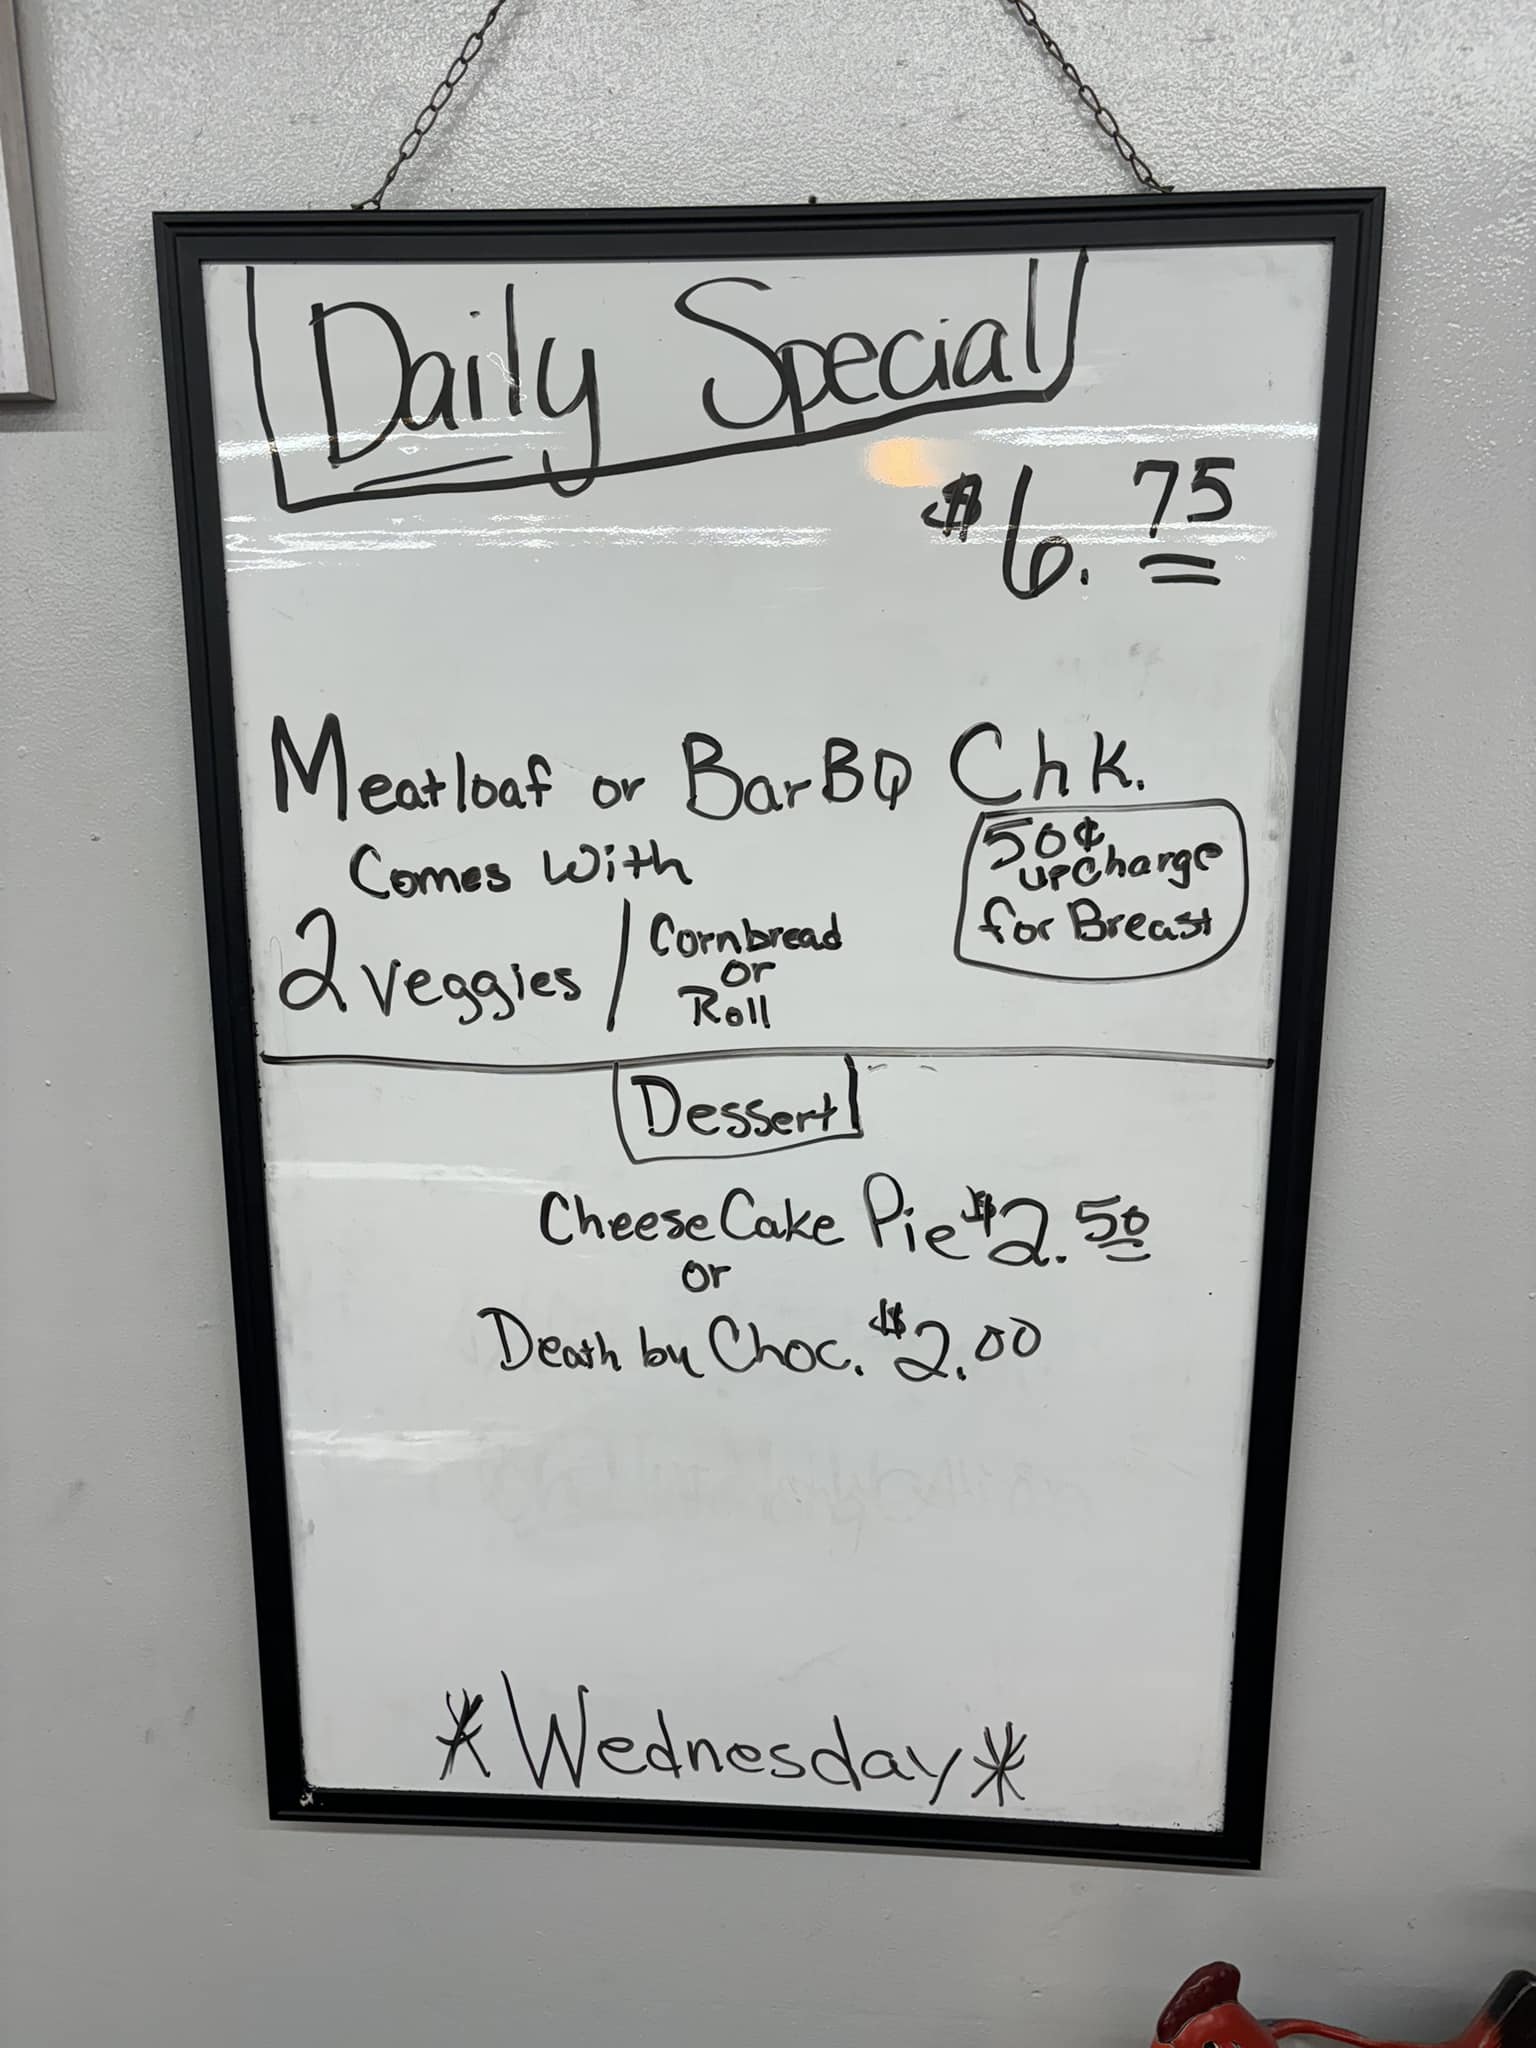 Daily Special
$6.75
Meatloaf or BarBQ Chk.
Comes With
50¢
upcharge
for Breast
2 veggies / Cornbread
or
Roll
Dessert
CheeseCake Pie $2.50
or
Death by Choc. $2.00
*Wednesday*